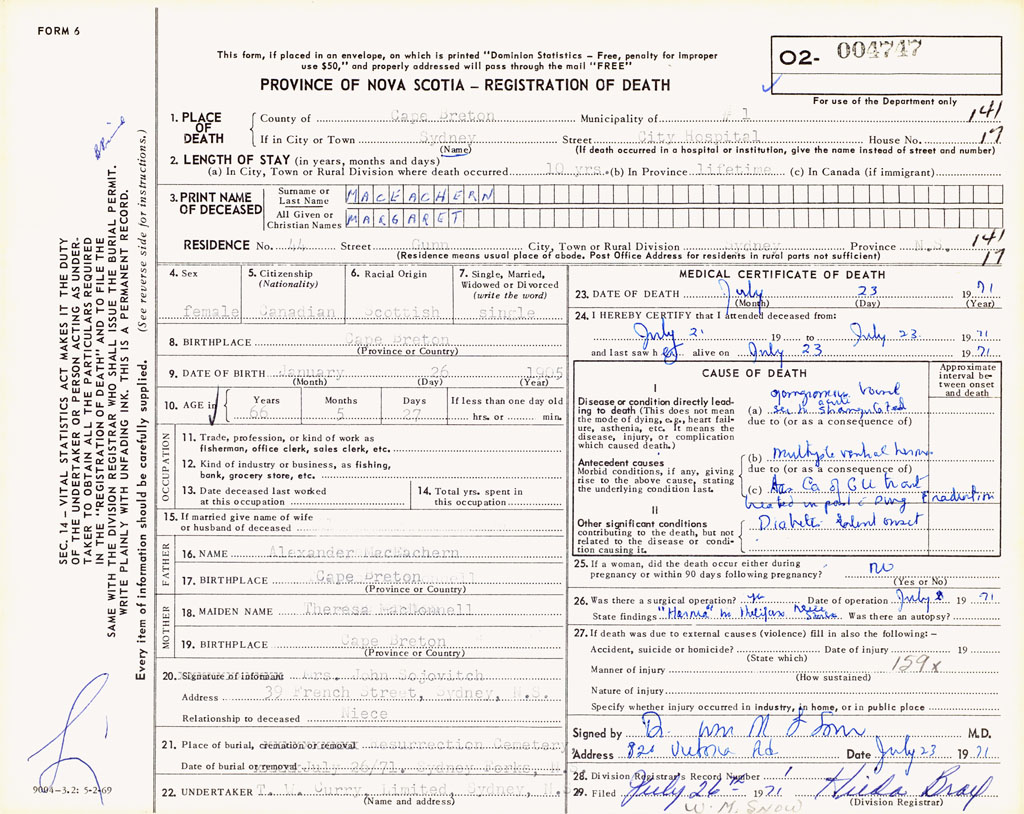 FORM 6
This form, if placed in an envelope, on which is printed "Dominion Statistics – Free, penalty for improper
use $50," and properly addressed will pass through the mail "FREE"
PROVINCE OF NOVA SCOTIA – REGISTRATION OF DEATH
02- 004747
For use of the Department only
141
17
1. PLACE OF DEATH
County of Cape Breton Municipality of # 1
If in City or Town Sydney Street City Hospital House No.
(Name) (If death occurred in a hospital or institution, give the name instead of street and number)
2. LENGTH OF STAY (in years, months and days)
(a) In City, Town or Rural Division where death occurred 10 yrs. (b) In Province lifetime (c) In Canada (if immigrant)
3. PRINT NAME OF DECEASED
Surname or Last Name MACEACHERN
All Given or Christian Names MARGARET
RESIDENCE No. 44 Street Gunn City, Town or Rural Division Sydney Province N.S.
(Residence means usual place of abode. Post Office Address for residents in rural parts not sufficient)
141
17
4. Sex
female
5. Citizenship (Nationality)
Canadian
6. Racial Origin
Scottish
7. Single, Married, Widowed or Divorced (write the word)
single
8. BIRTHPLACE Cape Breton
(Province or Country)
9. DATE OF BIRTH January 26 1905
(Month) (Day) (Year)
10. AGE in
Years Months Days If less than one day old
66 5 27 hrs. or min.
OCCUPATION
11. Trade, profession, or kind of work as
fisherman, office clerk, sales clerk, etc.
12. Kind of industry or business, as fishing,
bank, grocery store, etc.
13. Date deceased last worked
at this occupation
14. Total yrs. spent in
this occupation
15. If married give name of wife
or husband of deceased
FATHER
16. NAME Alexander MacEachern
17. BIRTHPLACE Cape Breton
(Province or Country)
MOTHER
18. MAIDEN NAME Theresa MacDonnell
19. BIRTHPLACE Cape Breton
(Province or Country)
20. Signature of informant Mrs. John Sojovitch
Address 39 French Street, Sydney, N.S.
Relationship to deceased Niece
21. Place of burial, cremation or removal Resurrection Cemetery
Date of burial or removal July 26/71, Sydney Forks, N.
22. UNDERTAKER T. W. Curry, Limited, Sydney, N.S
(Name and address)
MEDICAL CERTIFICATE OF DEATH
23. DATE OF DEATH July 23 1971
(Month) (Day) (Year)
24. I HEREBY CERTIFY that I attended deceased from:
July 21 19 to July 23 1971
and last saw her alive on July 23 1971
CAUSE OF DEATH
Approximate interval between onset and death
I
Disease or condition directly leading to death (This does not mean the mode of dying, e.g., heart failure, asthenia, etc. It means the disease, injury, or complication which caused death.)
(a) gangrenous bowel
acute
strangulated
due to (or as a consequence of)
Antecedent causes
Morbid conditions, if any, giving rise to the above cause, stating the underlying condition last.
(b) multiple ventral hernia
due to (or as a consequence of)
(c) Ca of GU tract
treated in past radiation
II
Other significant conditions
contributing to the death, but not related to the disease or condition causing it.
Diabetes onset
25. If a woman, did the death occur either during
pregnancy or within 90 days following pregnancy? no
(Yes or No)
26. Was there a surgical operation? yes Date of operation July 8 1971
State findings "Hernia" in Halifax Was there an autopsy?
27. If death was due to external causes (violence) fill in also the following: –
Accident, suicide or homicide? Date of injury 19
(State which)
Manner of injury 159x
(How sustained)
Nature of injury
Specify whether injury occurred in industry, in home, or in public place
Signed by Dr. Wm M M.D.
Address Victoria Rd. Date July 23 1971
28. Division Registrar's Record Number
29. Filed July 26th 1971 Hilda Bray
(Division Registrar)
W. M. SNOW
SEC. 14 – VITAL STATISTICS ACT MAKES IT THE DUTY
OF THE UNDERTAKER OR PERSON ACTING AS UNDER-
TAKER TO OBTAIN ALL THE PARTICULARS REQUIRED
IN THE "REGISTRATION OF DEATH" AND TO FILE THE
SAME WITH THE DIVISION REGISTRAR WHO SHALL ISSUE THE BURIAL PERMIT.
WRITE PLAINLY WITH UNFADING INK. THIS IS A PERMANENT RECORD.
Every item of information should be carefully supplied. (See reverse side for instructions.)
9004-3.2: 5-2-69